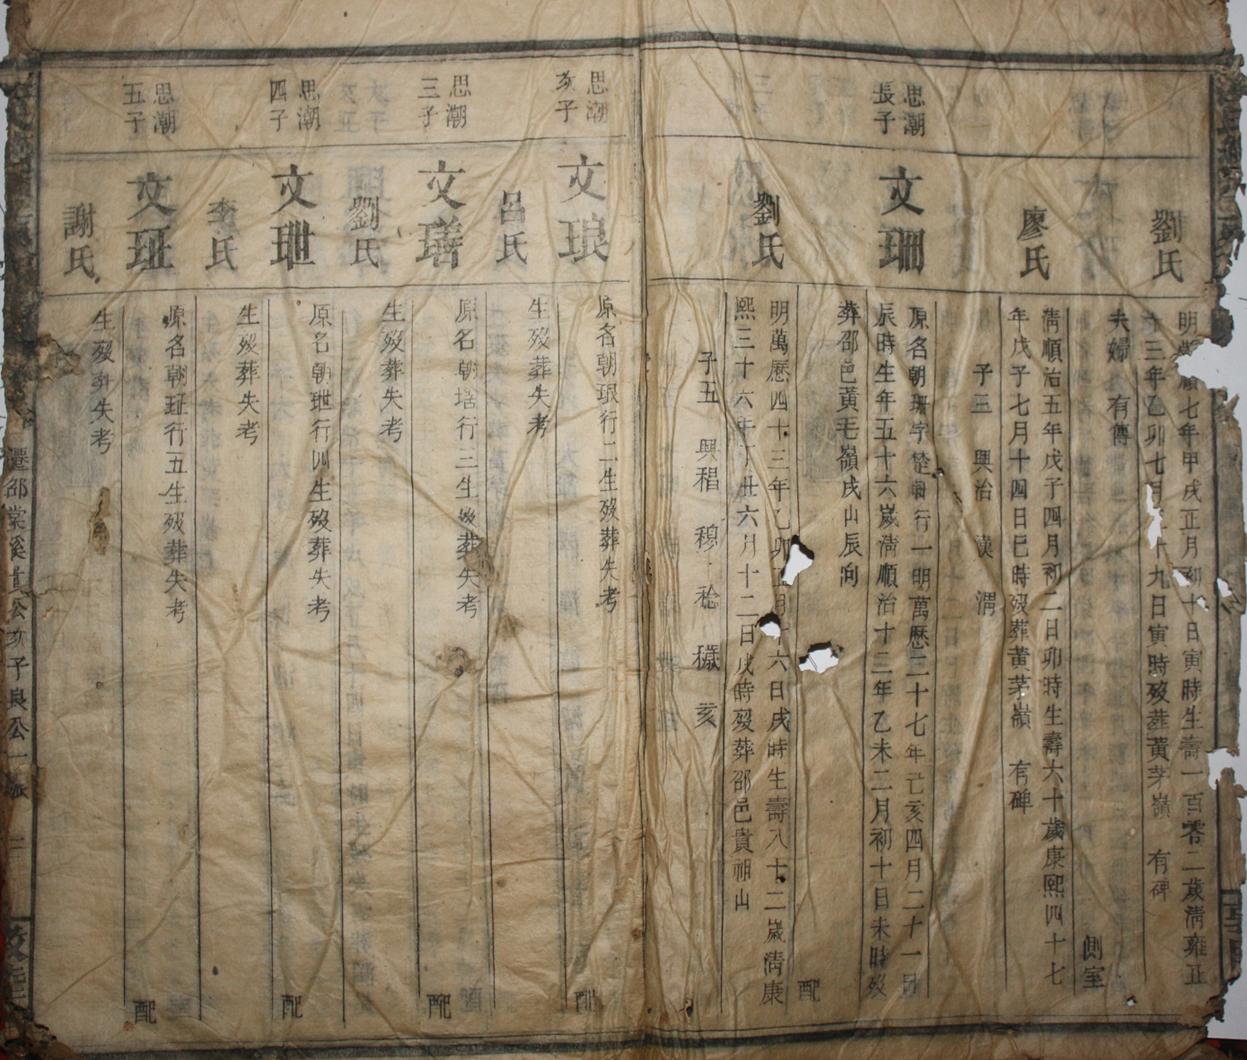 劉氏
明 七年甲戌正月初十日寅時生壽一百零二歲清雍正
十三年乙卯七 九日寅時歿葬黃茅嶺 有碑
夫婦有傳
側室
廖氏
清順治五年戊子四月初二日卯時生壽六十歲康熙四十七
年戊子七月十四日巳時歿葬黃茅嶺 有碑
子三 興治 漢 渭
思潮
長子
文珊
原名朝珊字楚 行一明萬歷二十七年己亥四月二十一日
辰時生年五十六歲清順治十二年乙未二月初十日未時歿
葬邵邑黃毛嶺戌山辰向
配
劉氏
明萬歷四十三年乙卯 月 六日戌時生壽八十二歲清康
熙三十六年丁丑六月十二日戌時歿葬邵邑貴祖山
子五 興稆 穆 稔 穢 亥
思潮
次子
文琅
原名朝珢行二生歿葬失考
配
呂氏
生歿葬失考
思潮
三子
文璿
原名朝 行三生歿葬失考
配
劉氏
生歿葬失考
思潮
四子
文玴
原名朝玴行四生歿葬失考
配
李氏
生歿葬失考
思潮
五子
文玨
原名朝玨行五生歿葬失考
配
謝氏
生歿葬失考
遷邵棠溪 公亥子良公一派